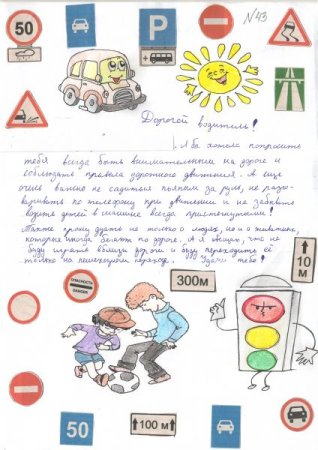 50
P
№43
Дорогой водитель!
Я бы хотела попросить
тебя всегда быть внимательным на дороге и
соблюдать правила дорожного движения. А еще
очень важно не садиться пьяным за руль, не разго-
варивать по телефону при движении и не забывать
возить детей в машине всегда пристёгнутыми!
Также нужно думать не только о людях, но и о животных,
которые иногда бегают по дороге. А я обещаю, что не
буду играть вблизи дороги и буду переходить её
только на пешеходном переходе. Удачи тебе!
10 м
300м
ОПАСНОСТЬ
DANGER
50
100 м